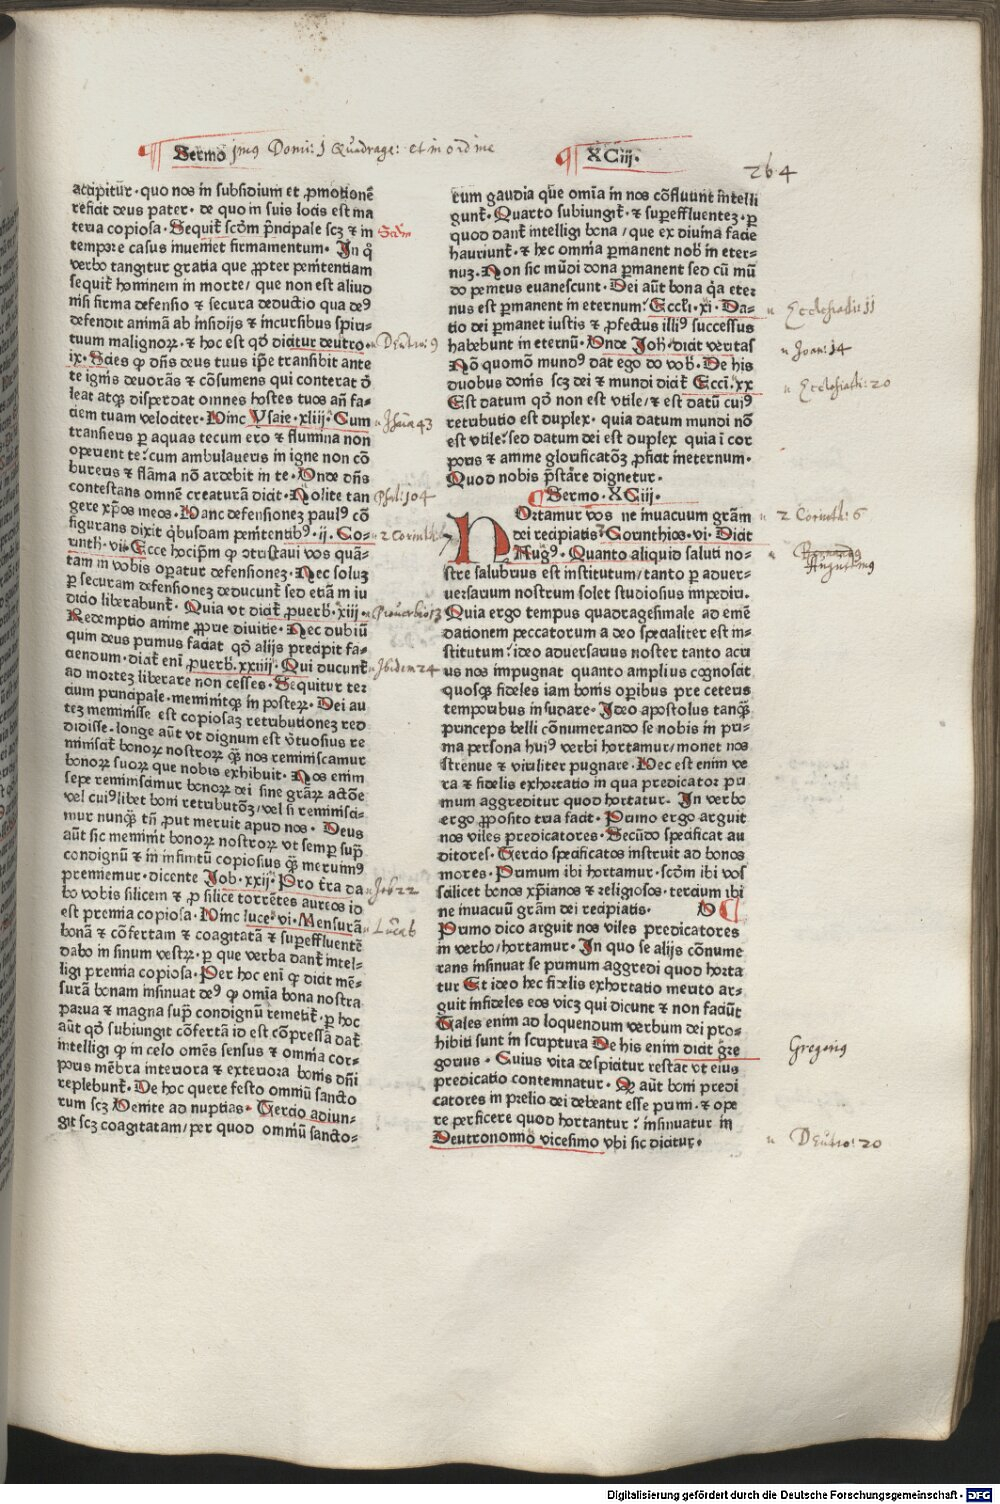 Sermo jmus Domi: j Quadrage: et in ordine
XCiij.
264
accipitur · quo nos in subsidium et ꝓmotionē
reficit deus pater · de quo in suis locis est ma
teria copiosa · Sequit᷑ scḋm pͥncipale scꝫ ⁊ in
tempore casus inueniet firmamentum · In qͦ
verbo tangitur gratia que ꝓpter penitentiam
sequit᷑ hominem in morte / que non est aliud
nisi firma defensio ⁊ secura deductio qua deꝰ
defendit animā ab insidijs ⁊ incursibus spiri⸗
tuum malignoꝝ · ⁊ hoc est qḋ dicitur deutro⸗
ix · Scies ꝙ dn̄s deus tuus ip̄e transibit ante
te ignis deuorās ⁊ cōsumens qui conterat ⁊ de
leat atqꝫ disperdat omnes hostes tuos an̄ fa⸗
ciem tuam velociter · Hinc Ysaie · xliij · Cum
transieris ꝑ aquas tecum ero ⁊ flumina non
operient te · cum ambulaueris in igne non cō
bureris ⁊ flāma nō ardebit in te · Unde dn̄s
contestans omnē creaturā dicit · Nolite tan
gere xp̄os meos · Hanc defensionez paulꝰ cō
figurans dixit qͥbusdam penitentibꝰ · ij · Co⸗
rinth · vij · Ecce hoc ip̄m ꝙ ꝯtristaui vos quā⸗
tam in vobis operatur defensionez · Nec soluꝫ
ꝑ securam defensioneꝫ deducunt᷑ sed etiā m iu
dicio liberabunt᷑ · Quia vt dicit᷑ ꝓuerb̄ · xiij ·
Redemptio anime ꝓprie diuitie · Nec dubiū
quin deus primus faciat qḋ alijs precipit fa⸗
ciendum · dicit᷑ eni ꝓuerb̄ · xxiiij · Qui ducunt᷑
ad mortez liberare non cesses · Sequitur ter
cium principale · meminitqꝫ in posteꝝ · Dei au
tez meminisse est copiosaꝫ retributionez red
didisse · longe aūt vt dignum est virtuosius re
miniscit᷑ bonoꝝ nostroꝝ qͣꝫ nos reminiscamur
bonoꝝ suoꝝ que nobis exhibuit · Nos enim
sepe reminiscimur bonoꝝ dei sine grāꝝ actōe
vel cuiꝰlibet boni retributōꝫ / vel si reminisci⸗
mur nunqͣꝫ tn̄ ꝓut meruit apud nos · Deus
aūt sic meminit bonoꝝ nostroꝝ vt semꝑ sup̄
condignū ⁊ in infinitū copiosius qͣꝫ meruimꝰ
premiemur · dicente Job · xxij · Pro t̄ra da
bo vobis silicem ⁊ ꝓ silice torrētes aureos id
est premia copiosa · Hinc luce · vi · Mensurā
bonā ⁊ cōfertam ⁊ coagitatā ⁊ supereffluentē
dabo in sinum vestꝝ · ꝑ que verba dant᷑ intel⸗
ligi premia copiosa · Per hoc eni ꝙ dicit mē⸗
surā bonam insinuat deꝰ ꝙ omīa bona nostra
parua ⁊ magna sup̄ condignū remetit᷑ · ꝑ hoc
aūt qḋ subiungit cōfertā id est cōpressā dat᷑
intelligi ꝙ in celo omēs sensus ⁊ omnia cor⸗
poris mēbra interiora ⁊ exteriora bonis dn̄i
replebunt᷑ · De hoc quere festo omniū sancto
rum scꝫ Venite ad nuptias · Tercio adiun⸗
git scꝫ coagitatam / per quod omniū sancto⸗
Scḋm
Deutro: 9
Jsaia 43
Psal: 104
2 Corinth: 7
Prouerbio 13
Ibidem 24
Job 22
Luc. 6
rum gaudia que omīa in nos cōfluunt intelli
gunt᷑ · Quarto subiungit᷑ · ⁊ supereffluentez · ꝑ
quod dant᷑ intelligi bona / que ex diuina facie
hauriunt᷑ · ⁊ hec omnia ꝑmanent nob̄ in eter⸗
nuꝫ · Non sic mūdi dona ꝑmanent sed cū mū⸗
do penitus euanescunt · Dei aūt bona qͥa eter
nus est ꝑmanent in eternum · Eccl̄i · xi · Da⸗
tio dei ꝑmanet iustis ⁊ ꝓfectus illiꝰ successus
habebunt in eternū · Unde Joh̄ dicit veritas
Nō quomō mundꝰ dat ego do vob̄ · De his
duobus donis scꝫ dei ⁊ mundi dicit᷑ Eccī · xx
Est datum qḋ non est vtile / ⁊ est datū cuiꝰ
retributio est duplex · quia datum mundi nō
est vtile · sed datum dei est duplex quia ī cor
poris ⁊ anime glorificatōꝫ ꝓficit ineternum ·
Quod nobis pͥstāre dignetur ·
Sermo · XCiij ·
HOrtamur vos ne inuacuum grām
dei recipiatis · Corinthios · vi · Dicit
Augꝰ · Quanto aliquid saluti no⸗
stre salubrius est institutum / tanto ꝑ aduer⸗
uersarium nostrum solet studiosius impediri ·
Quia ergo tempus quadragesimale ad emē
dationem peccatorum a deo specialiter est in⸗
stitutum · ideo aduersarius noster tanto acri
us nos impugnat quanto amplius cognoscit
quosqꝫ fideles iam bonis operibus pre ceteris
temporibus insudare · Ideo apostolus tanqͣꝫ
princeps belli cōnumerando se nobis in pri⸗
ma persona huiꝰ verbi hortamur / monet nos
strenue ⁊ viriliter pugnare · Hec est enim ve
ra ⁊ fidelis exhortatio in qua predicator pri
mum aggreditur quod hortatur · In verbo
ergo ꝓposito tria facit · Primo ergo arguit
nos viles predicatores · Secūdo specificat au
ditores · Tercio specificatos instruit ad bonos
mores · Primum ibi hortamur · scḋm ibi vos
scilicet bonos xp̄ianos ⁊ religiosos · tercium ibi
ne inuacuū grām dei recipiatis ·
Primo dico arguit nos viles predicatores
in verbo / hortamur · In quo se alijs cōnume
rans insinuat se primum aggredi quod horta
tur Et ideo hec fidelis exhortatio merito ar⸗
guit infideles eos vicꝫ qui dicunt ⁊ non faciūt
Tales enim ad loquendum verbum dei pro⸗
hibiti sunt in scriptura De his enim dicit gͥre
gorius · Cuius vita despicitur restat vt eius
predicatio contemnatur · Qͥ aūt boni predi
catores in prelio dei debeant esse primi · ⁊ ope
re perficere quod hortantur · insinuatur in
Deutronomiō vicesimo vbi sic dicitur ·
Ecclesiasti: 11
Joan: 14
Ecclesiasti: 20
2 Corinth: 6
Augustinus
Gregorius
Deutro: 20
Digitalisierung gefördert durch die Deutsche Forschungsgemeinschaft - DFG